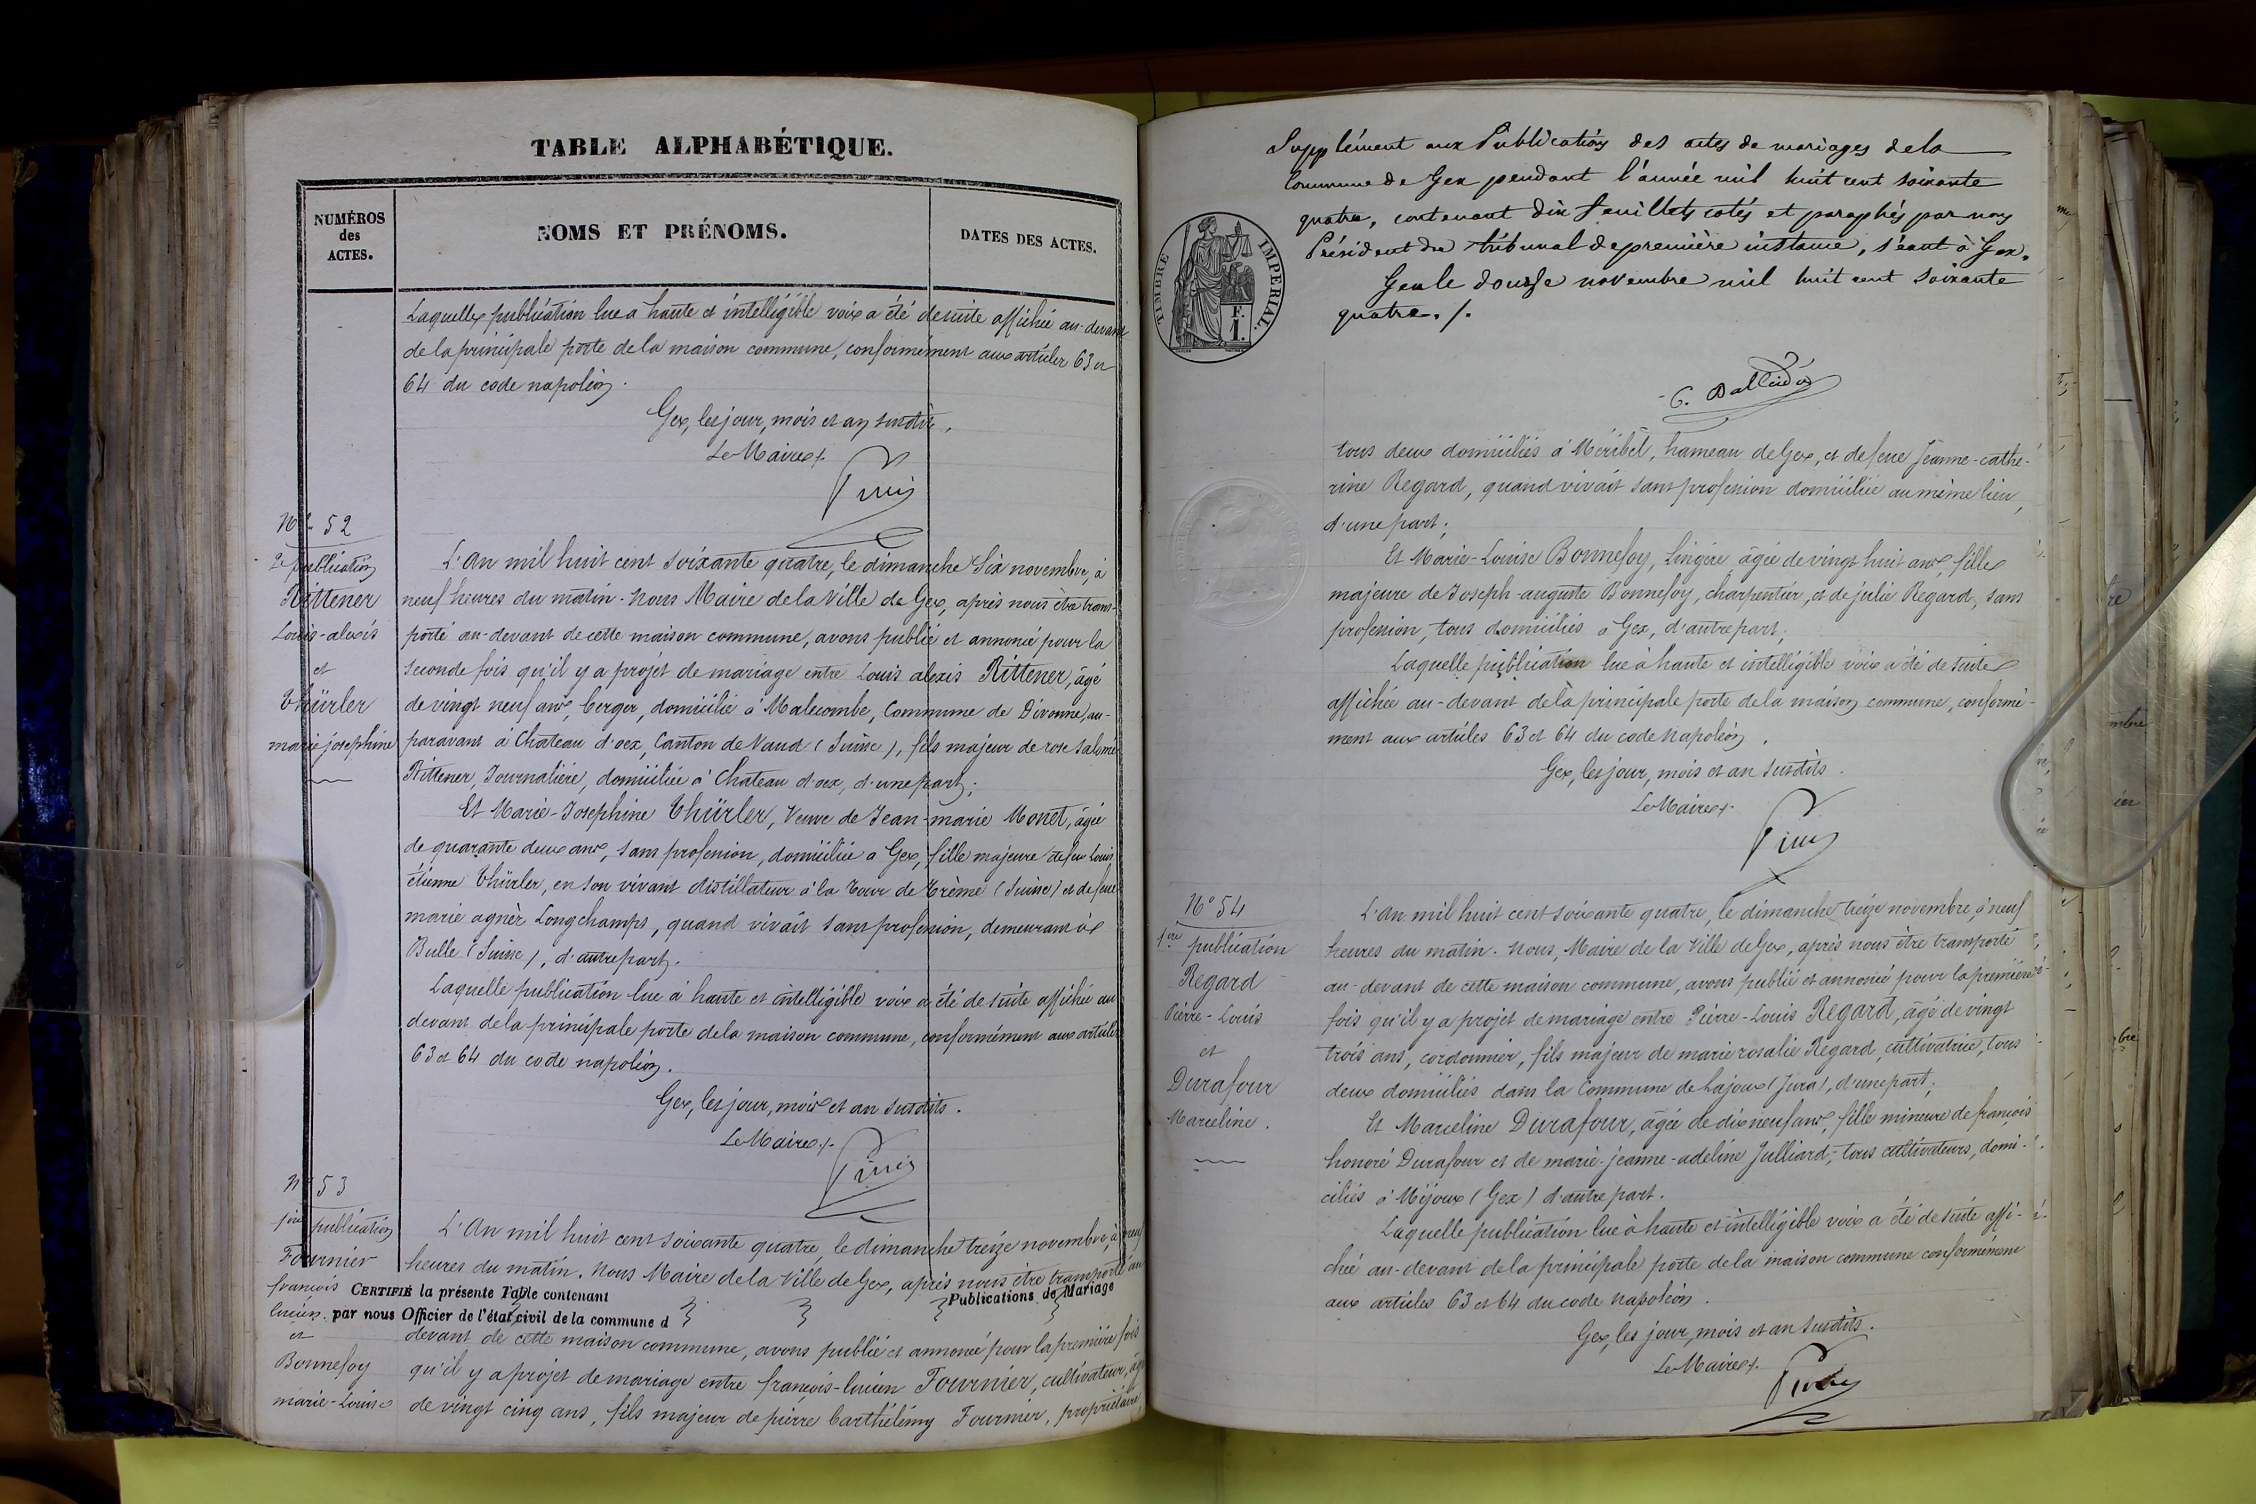 TABLE ALPHABÉTIQUE.
NUMÉROS
des
ACTES.
NOMS ET PRÉNOMS.
DATES DES ACTES.
Laquelle publication lue à haute et intelligible voix a été de suite affichée au-devant
de la principale porte de la maison commune, conformément aux articles 63 et
64 du code napoléon.
Gex, les jour, mois et an susdits.
Le Maire
N° 52
2e publication
Rittener
Louis-alexis
et
Thürler
marie josephine
L'An mil huit cent soixante quatre, le dimanche Six novembre, à
neuf heures du matin. Nous Maire de la Ville de Gex, après nous être trans-
porté au-devant de cette maison commune, avons publié et annoncé pour la
seconde fois qu'il y a projet de mariage entre Louis alexis Rittener, âgé
de vingt neuf ans, berger, domicilié à Malecombe, Commune de Divonne, au-
paravant à Chateau d'oex, Canton de Vaud (Suisse), fils majeur de rose salomé
Rittener, Journalière, domiciliée à Chateau d'oex, d'une part;
Et Marie-Josephine Thürler, Veuve de Jean-marie Monet, âgée
de quarante deux ans, sans profession, domiciliée a Gex, fille majeure de feu Louis
étienne Thürler, en son vivant distillateur à la Tour de Trême (Suisse) et de feue
marie agnès Longchamps, quand vivait sans profession, demeurant à
Bulle (Suisse), d'autre part.
Laquelle publication lue à haute et intelligible voix a été de suite affichée au
devant de la principale porte de la maison commune, conformément aux articles
63 et 64 du code napoléon.
Gex, les jour, mois et an susdits.
Le Maire
N° 53
1ère publication
Fournier
françois
lucien
et
Bonnefoy
marie-Louise
L'An mil huit cent soixante quatre, le dimanche treize novembre, à neuf
heures du matin. Nous Maire de la Ville de Gex, après nous être transporté au
CERTIFIÉ la présente Table contenant Publications de Mariage
par nous Officier de l'état civil de la commune d
devant de cette maison commune, avons publié et annoncé pour la première fois
qu'il y a projet de mariage entre françois-lucien Fournier, cultivateur, âgé
de vingt cinq ans, fils majeur de pierre barthélémy Fournier, propriétaire
Supplément aux Publications des actes de mariages de la
Commune de Gex pendant l'année mil huit cent soixante
quatre, contenant dix feuillets cotés et paraphés par nous
Président du tribunal de première instance, séant à Gex.
Gex le douze novembre mil huit cent soixante
quatre./.
TIMBRE IMPERIAL.
F.
1.
tous deux domiciliés à Méribel, hameau de Gex, et de feue Jeanne-cathe-
rine Regard, quand vivait sans profession domiciliée au même lieu,
d'une part;
Et Marie-Louise Bonnefoy, Lingère âgée de vingt huit ans, fille
majeure de Joseph-auguste Bonnefoy, charpentier, et de julie Regard, sans
profession, tous domiciliés à Gex, d'autre part;
Laquelle publication lue à haute et intelligible voix a été de suite
affichée au-devant de la principale porte de la maison commune, conformé-
ment aux articles 63 et 64 du code napoléon.
Gex, les jour, mois et an susdits.
Le Maire
N° 54
1ère publication
Regard
Pierre-Louis
et
Durafour
Marceline.
L'An mil huit cent soixante quatre, le dimanche treize novembre, à neuf
heures du matin. Nous, Maire de la Ville de Gex, après nous être transporté
au-devant de cette maison commune, avons publié et annoncé pour la première
fois qu'il y a projet de mariage entre Pierre-Louis Regard, âgé de vingt
trois ans, cordonnier, fils majeur de marie rosalie Regard, cultivatrice, tous
deux domiciliés dans la Commune de Lajoux (Jura), d'une part;
Et Marceline Durafour, âgée de dix neuf ans, fille mineure de françois
honoré Durafour et de marie-jeanne-adeline Julliard, tous cultivateurs, domi-
ciliés à Mijoux (Gex) d'autre part.
Laquelle publication lue à haute et intelligible voix a été de suite affi-
chée au-devant de la principale porte de la maison commune conformément
aux articles 63 et 64 du code napoléon.
Gex, les jour, mois et an susdits.
Le Maire